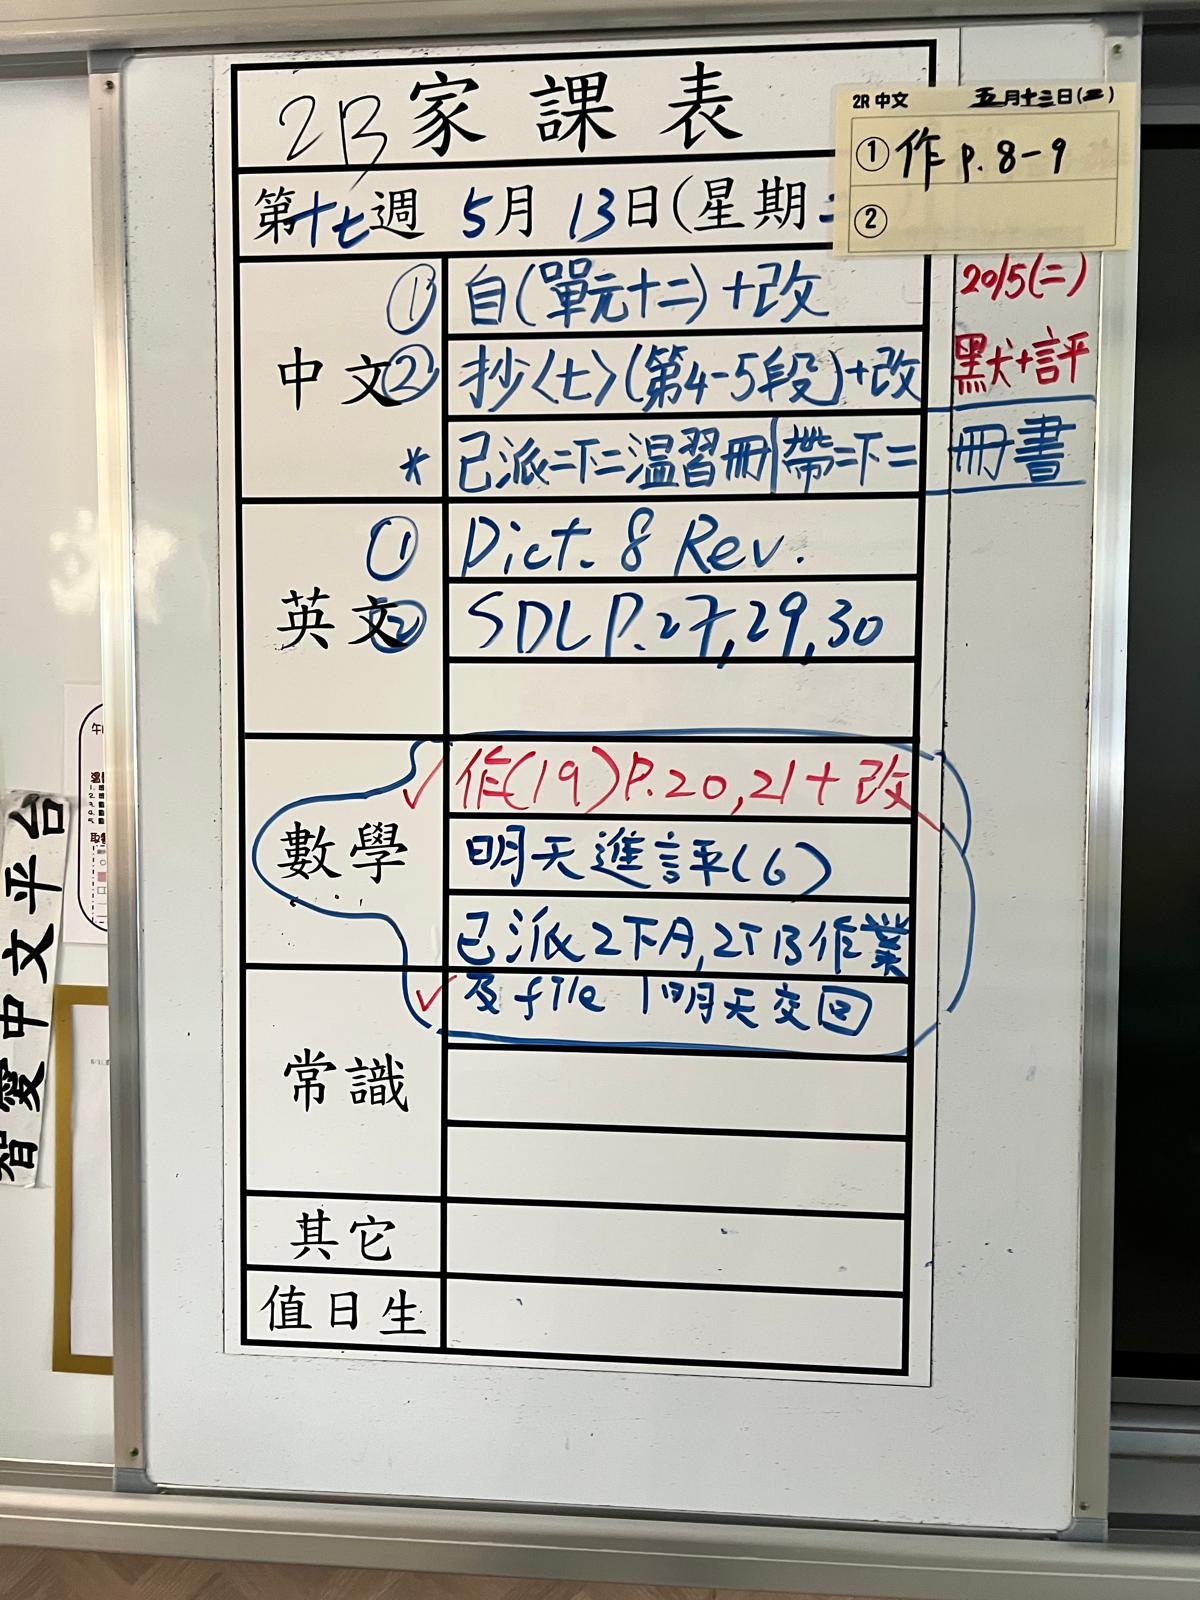 2B家課表
2R 中文 五月十三日(二)
① 作 p. 8-9
②
第十七週 5月 13日(星期二
中文
① 自(單元十二)+改
② 抄〈七〉(第4-5段)+改
* 已派二下二温習冊|帶二下二冊書
20/5(二)
默+評
英文
① Dict. 8 Rev.
② SDL P.27,29,30
數學
✓ 作(19)P.20,21+改
明天進評(6)
已派2下A,2下B作業
✓ 及file|明天交回
常識
其它
值日生
智愛中文平台